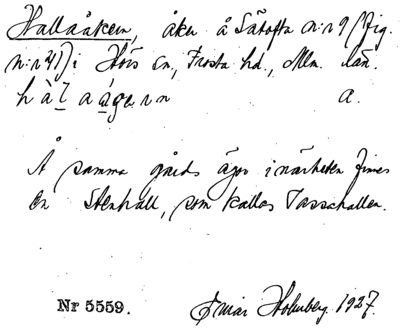 Hallaåkern, åker å Sätofta n:r 9 (fig.
n:r 41) i Hörs sn, Frosta hd, Mlm. län.
hàlaágeɹn a.
Å samma gårds ägor i närheten finnes
en Stenhall, som kallas Tasschallen.
Nr 5559.
Einar Holmberg. 1927.